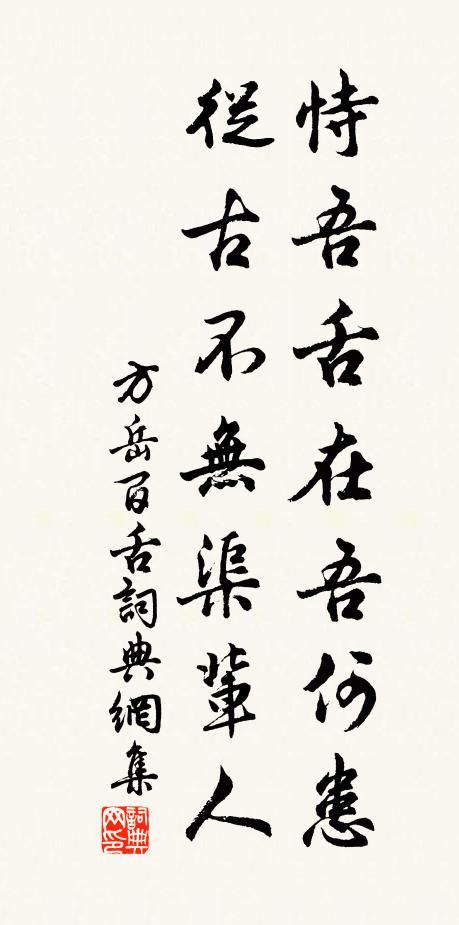 恃吾舌在吾何患
從古不無渠輩人
方岳百舌詞典網集
詞典網印